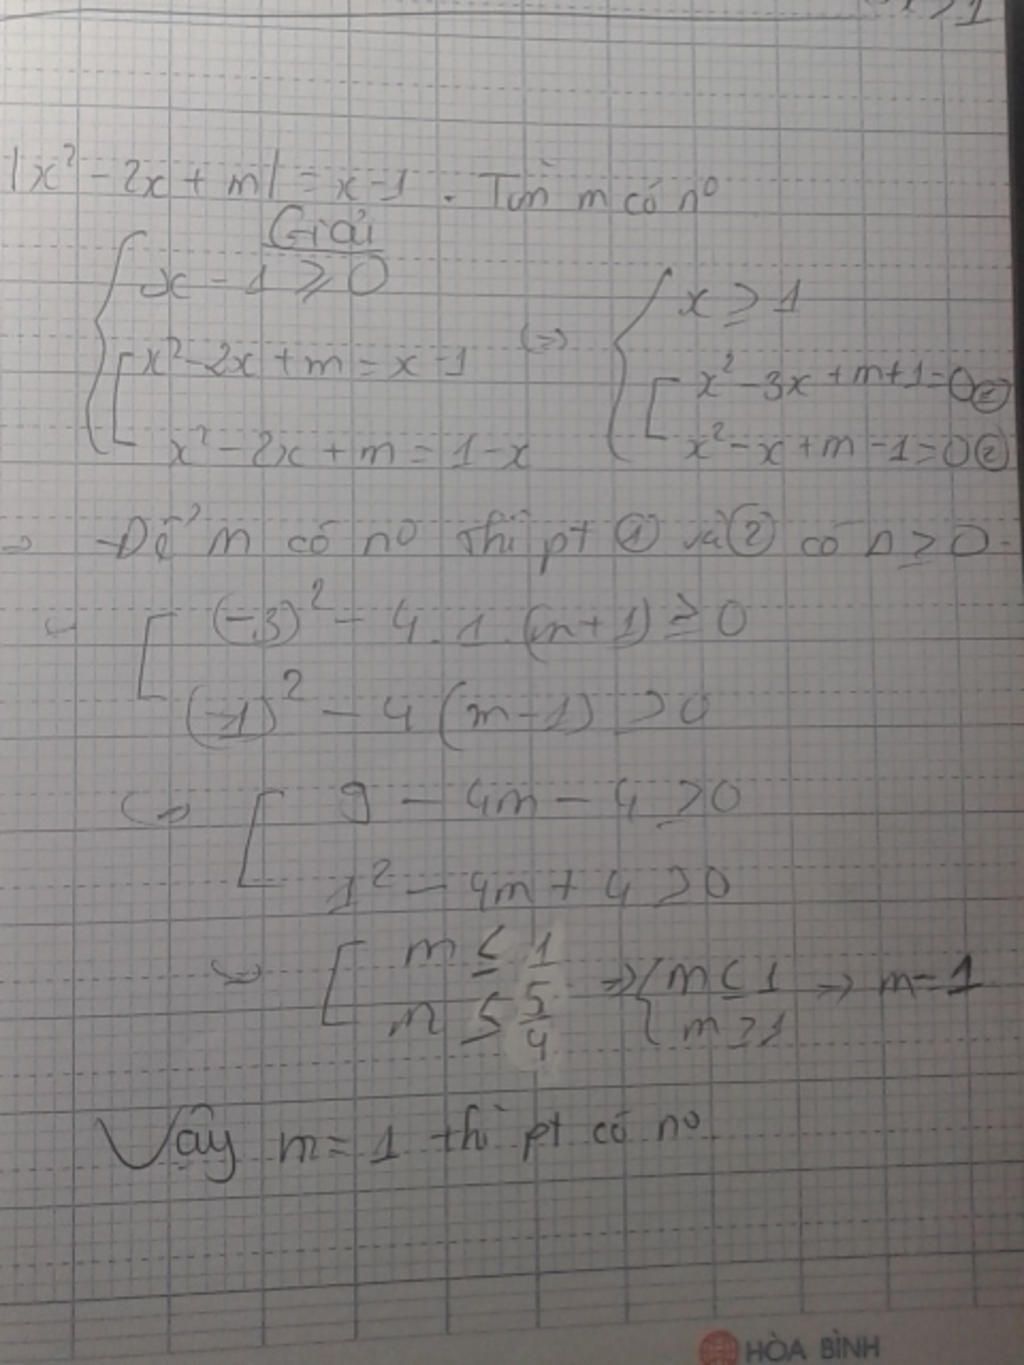 > 1
|x² - 2x + m| = x - 1 . Tìm m có n⁰
Giải
{ x - 1 ≥ 0
[ x² - 2x + m = x - 1
x² - 2x + m = 1 - x
<=> { x ≥ 1
[ x² - 3x + m + 1 = 0 ②
x² - x + m - 1 = 0 ②
=> - Để m có n⁰ thì pt ① và ② có Δ ≥ 0.
[ (-3)² - 4.1.(m+1) ≥ 0
(-1)² - 4(m-1) > 0
<=> [ 9 - 4m - 4 ≥ 0
1² - 4m + 4 > 0
[ m ≤ 1 => { m ≤ 1 -> m = 1
m ≤ 5/4 m ≥ 1
Vậy m = 1 thì pt có n⁰
HÒA BÌNH